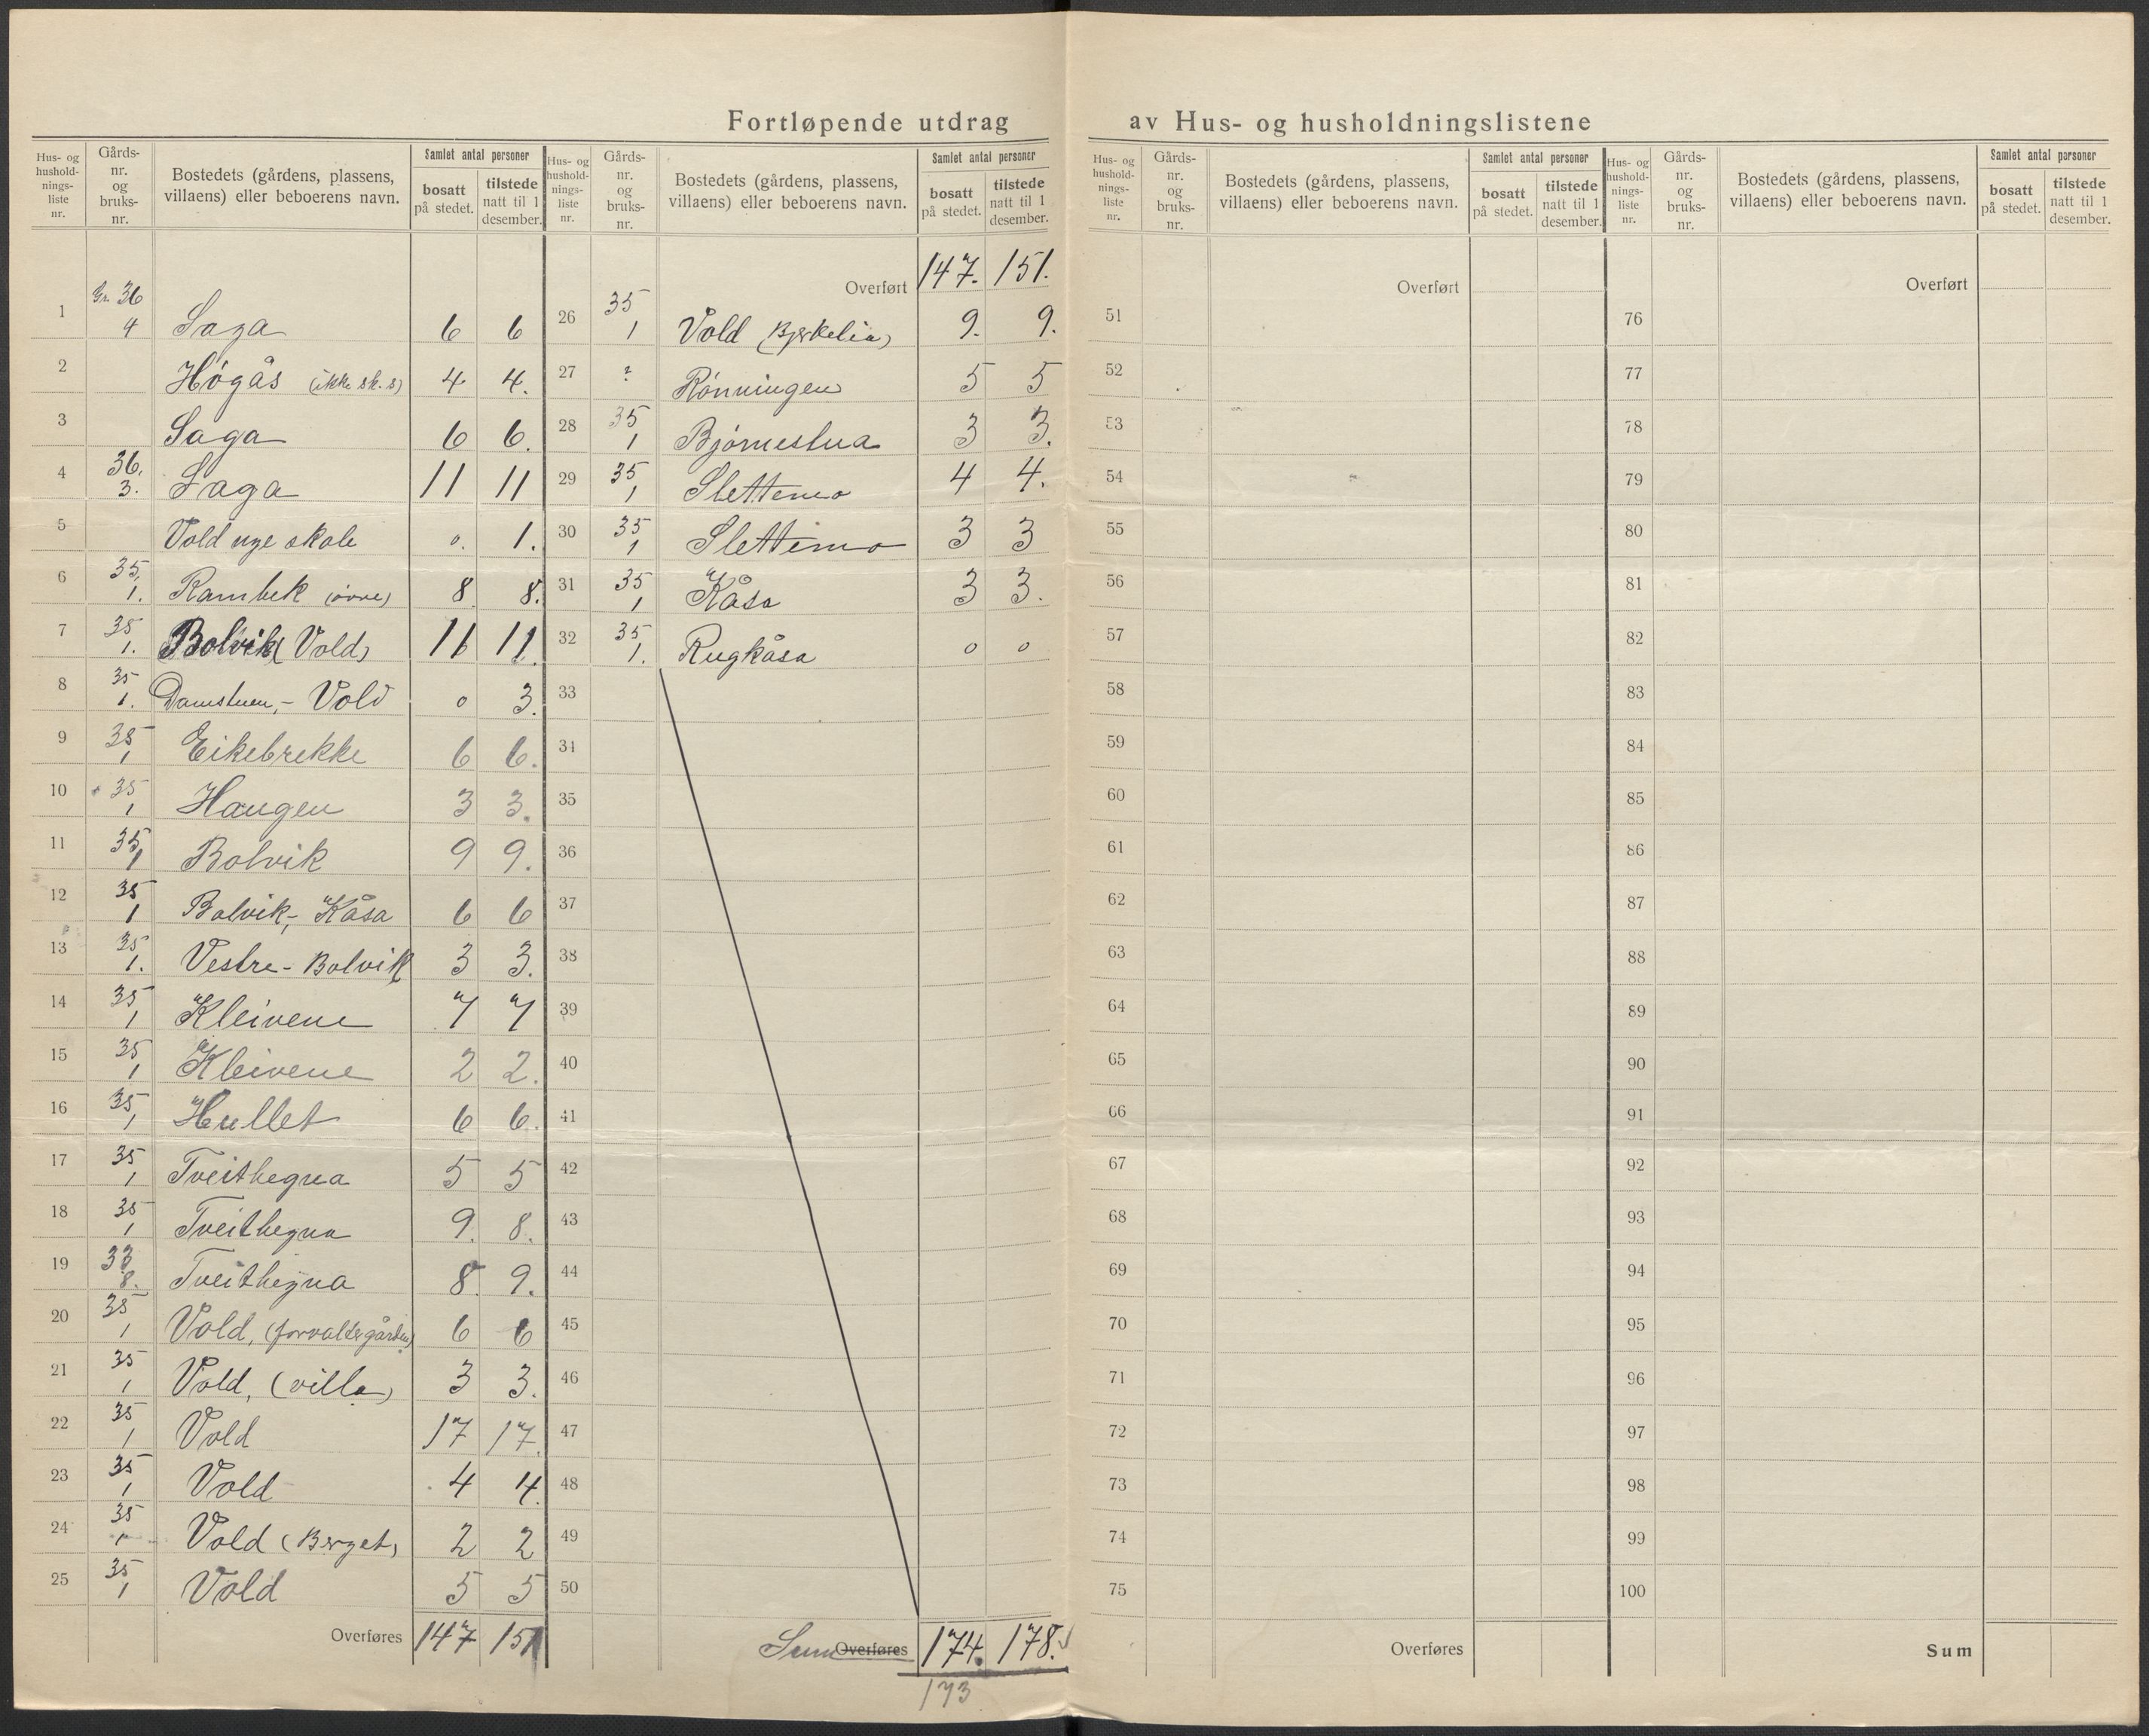 Fortløpende utdrag av Hus- og husholdningslistene
Hus- og hushold-nings-liste nr. Gårds-nr. og bruks-nr. Bostedets (gårdens, plassens, villaens) eller beboerens navn. Samlet antal personer bosatt på stedet. tilstede natt til 1 desember.
Hus- og hushold-nings-liste nr. Gårds-nr. og bruks-nr. Bostedets (gårdens, plassens, villaens) eller beboerens navn. Samlet antal personer bosatt på stedet. tilstede natt til 1 desember.
1 Gn. 36 4 Saga 6 6
2 Høgås (ikke sk. s) 4 4.
3 Saga 6 6.
4 36. 3. Saga 11 11
5 Vold nye skole 0. 1.
6 35, 1. Rambek (øvre) 8. 8.
7 35 1. Bolvik (Vold) 11 11.
8 35 1. Damstuen,- Vold 0 3.
9 35 1 Eikebrekke 6 6.
10 35 1 Haugen 3 3.
11 35, 1 Bolvik 9 9.
12 35 1 Bolvik,- Kåsa 6 6
13 35. 1. Vestre - Bolvik 3 3.
14 35 1 Kleivene 7 7
15 35 1 Kleivene 2 2.
16 35, 1 Hullet 6 6.
17 35, 1 Tveithegna 5 5
18 35 1 Tveithegna 9. 8.
19 33 8. Tveithegna 8. 9.
20 35 1 Vold, (forvaltergården) 6 6
21 35 1 Vold, (villa) 3 3.
22 35 1 Vold 17 17.
23 35 1 Vold 4 4.
24 35 1 Vold (Berget) 2 2
25 35 1 Vold 5 5
Overføres 147 151
Overført 147. 151.
26 35 1 Vold (Bjerkelia) 9. 9.
27 ? Rønningen 5 5
28 35 1 Bjørnestua 3 3.
29 35 1 Slettemo 4 4.
30 35 1 Slettemo 3 3
31 35 1 Kåsa 3 3.
32 35 1. Rugkåsa 0 0
33
34
35
36
37
38
39
40
41
42
43
44
45
46
47
48
49
50
Sum Overføres 174. 178.
173
Hus- og hushold-nings-liste nr. Gårds-nr. og bruks-nr. Bostedets (gårdens, plassens, villaens) eller beboerens navn. Samlet antal personer bosatt på stedet. tilstede natt til 1 desember.
Overført
51
52
53
54
55
56
57
58
59
60
61
62
63
64
65
66
67
68
69
70
71
72
73
74
75
Overføres
Hus- og hushold-nings-liste nr. Gårds-nr. og bruks-nr. Bostedets (gårdens, plassens, villaens) eller beboerens navn. Samlet antal personer bosatt på stedet. tilstede natt til 1 desember.
Overført
76
77
78
79
80
81
82
83
84
85
86
87
88
89
90
91
92
93
94
95
96
97
98
99
100
Sum